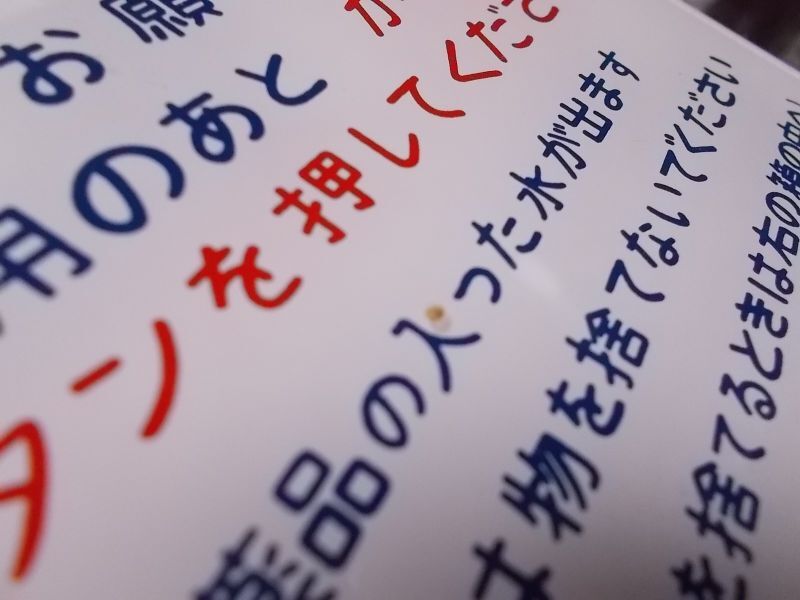 お願
用のあと
タンを押してくださ
薬品の入った水が出ます
は物を捨てないでください
を捨てるときは右の箱の中へ